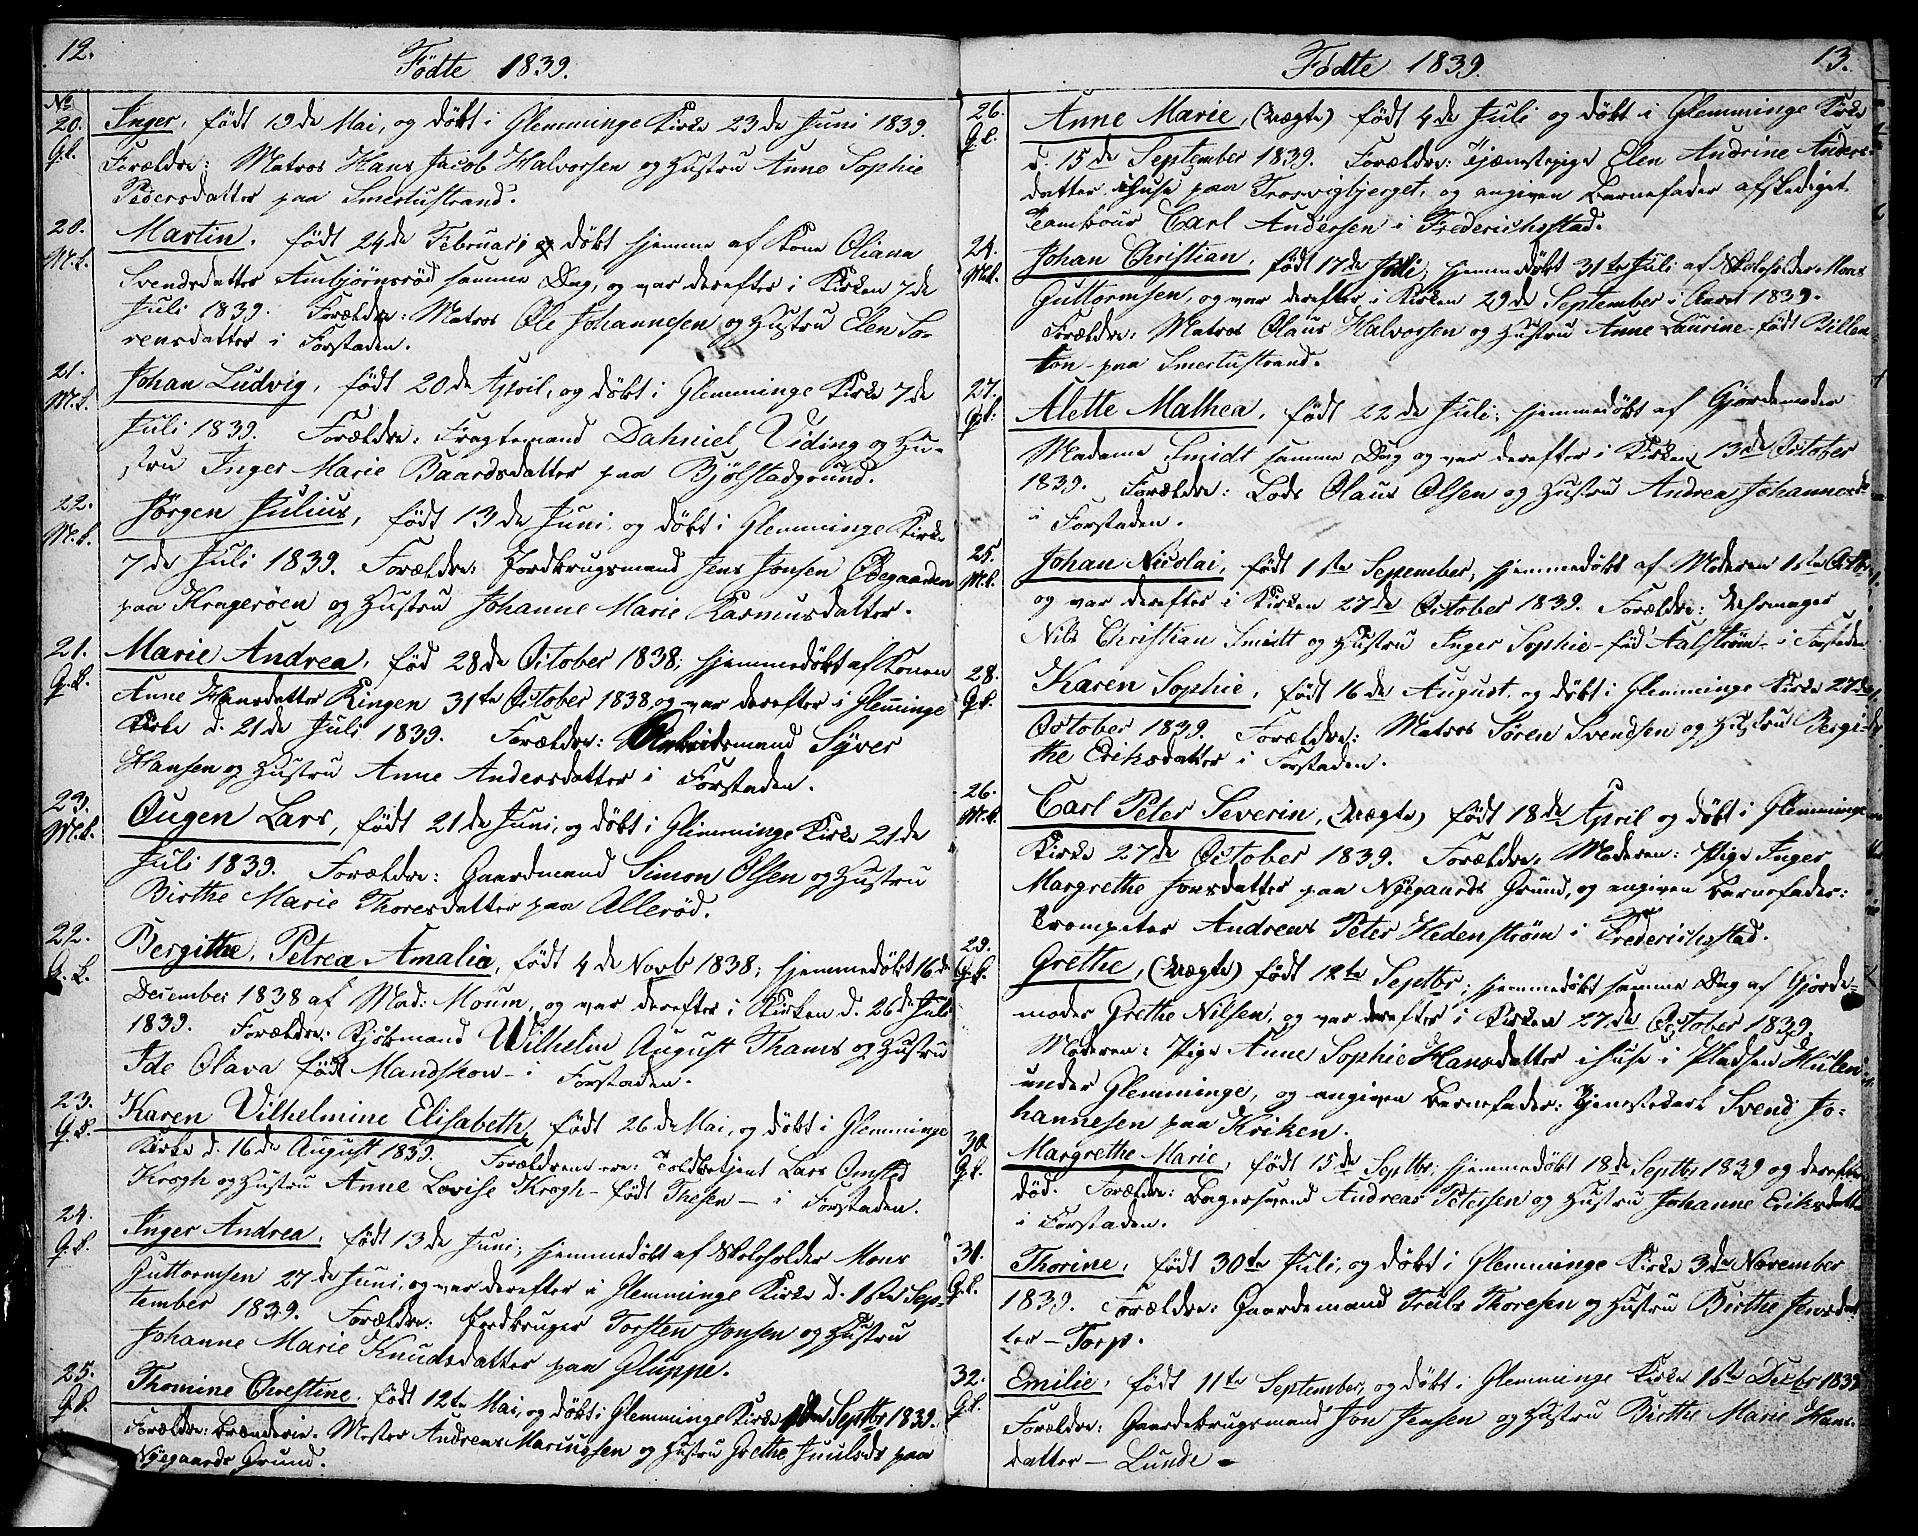 12.
Födte 1839.
No
20. G.b. Inger, født 19de Mai, og døbt i Glemminge Kirke 23de Juni 1839.
Forældre: Matros Hans Jacob Halvorsen og Hustru Anne Sophie
Pedersdatter paa Smertustrand.
20. M.b. Martin, født 24de Februari og døbt hjemme af Kone Oliana
Svendsdatter Ambjørnsrød samme Dag, og var derefter i Kirken 7de
Juli 1839. Forældre: Matros Ole Johannesen og Hustru Elen Sö-
rensdatter i Forstaden.
21. M.b. Johan Ludvig, født 20de April, og døbt i Glemminge Kirke 7de
Juli 1839. Forældre: Fragtemand Dahniel Viding og Hu-
stru Inger Marie Baardsdatter paa Bjölstadgrund.
22. M.b. Jørgen Julius, født 13de Juni, og døbt i Glemminge Kirke
7de Juli 1839. Forældre: Jordbrugsmand Jens Jonsen Ødegaarden
paa Kragerøen og Hustru Johanne Marie Rasmusdatter.
21. G.b. Marie Andrea, fød 28de October 1838; hjemmedøbt af Konen
Anne Hansdatter Ringen 31te October 1838 og var derefter i Glemminge
Kirke d. 21de Juli 1839. Forældre: Arbeidsmand Syver
Hansen og Hustru Anne Andersdatter i Forstaden.
23. M.b. Ougen Lars, født 21de Juni, og døbt i Glemminge Kirke 21de
Juli 1839. Forældre: Gaardmand Simon Olsen og Hustru
Birthe Marie Thoresdatter paa Allerød.
22. G.b. Bergithe, Petrea Amalia, født 4de Novb 1838; hjemmedøbt 16de
December 1838 af Mad: Moum, og var derefter i Kirken d. 26de Juli
1839. Forældre: Kjöbmand Wilhelm August Thams og Hustru
Ide Olava født Mandskow - i Forstaden.
23. G.b. Karen Vilhelmine Elisabeth, født 26de Mai, og døbt i Glemminge
Kirke d. 16de August 1839. Forældrene ere: Toldbetjent Lars Omsted
Krogh og Hustru Anne Lovise Krogh - født Thesen - i Forstaden.
24. G.b. Inger Andrea, født 13de Juni, hjemmedøbt af Skoleholder Mons
Guttormsen 27de Juni, og var derefter i Glemminge Kirke d. 1ste Sep-
tember 1839. Forældre: Jordbruger Torsten Jonsen og Hustru
Johanne Marie Knudsdatter paa Gluppe.
25. G.b. Thomine Christine, født 12te Mai, og døbt i Glemminge Kirke Septbr 1839.
Forældre: Brænderie-Mester Andreas Mariussen og Hustru Grethe Juulsd: paa
Nÿegaards Grund.
13.
Födte 1839.
26. G.b. Anne Marie, (uægte) født 4de Juli og døbt i Glemminge Kirke
d. 15de September 1839. Forældre: Tjenestepige Elen Andrine Anders-
datter ihuse paa Trosvigbjerget, og angiven Barnefader afskediget
Tambour Carl Andersen i Frederichsstad.
24. M.b. Johan Christian, født 17de Juli, hjemmedøbt 31te Juli af Skoleholder Mons
Guttormsen, og var derefter i Kirken 29de September i Aaret 1839.
Forældre: Matros Olaus Halvorsen og Hustru Anne Laurine - født Billen-
ton - paa Smertustrand.
27. G.b. Alette Mathea, født 22de Juli; hjemmedøbt af Gjordemoder
Madame Smidt samme Dag og var derefter i Kirken 13de October
1839. Forældre: Lods Olaus Olsen og Hustru Andrea Johannesd:
i Forstaden.
25. M.b. Johan Nicolai, født 1ste September, hjemmedøbt af Moderen 1ste Octbr
og var derefter i Kirken 27de October 1839. Forældre: Uhrmager
Nils Christian Smidt og Hustru Inger Sophie - fød Aalstrøm - i Forstaden
28. G.b. Karen Sophie, født 16de August, og døbt i Glemminge Kirke 27de
October 1839. Forældre: Matros Sören Svendsen og Hustru Bergi-
the Eriksdatter i Forstaden.
26. M.b. Carl Peter Severin, (uægte) født 18de April og døbt i Glemminge
Kirke 27de October 1839. Forældre: Moderen: Pige Inger
Margrethe Jonsdatter paa Nÿegaards Grund, og angiven Barnefader:
Trompeter Andreas Peter Hedenstrøm i Frederichsstad.
29. G.b. Grethe, (uægte) født 12te Septbr; hjemmedøbt samme Dag af Gjorde-
moder Grethe Nilsen, og var derefter i Kirken 27de October 1839.
Moderen: Pige Anne Sophie Hansdatter ihuse i Pladsen Hulen
under Glemminge, og angiven Barnefader: Tjenestekarl Svend Jo-
hannesen paa Kriken.
30. G.b. Margrethe Marie, født 15de Septbr; hjemmedøbt 18de Septbr 1839 og derefter
død. Forældre: Bagersvend Andreas Petersen og Hustru Johanne Eriksdatter
i Forstaden.
31. G.b. Thorine, født 30te Juli, og døbt i Glemminge Kirke 3de November
1839. Forældre: Gaardemand Truls Thoresen og Hustru Birthe Jensdat-
ter - Torp.
32. G.b. Emilie, født 11te September, og døbt i Glemminge Kirke 1ste Decbr 1839
Forældre: Gaardbrugsmand Jon Jensen og Hustru Birthe Marie Hans-
datter - Lunde -